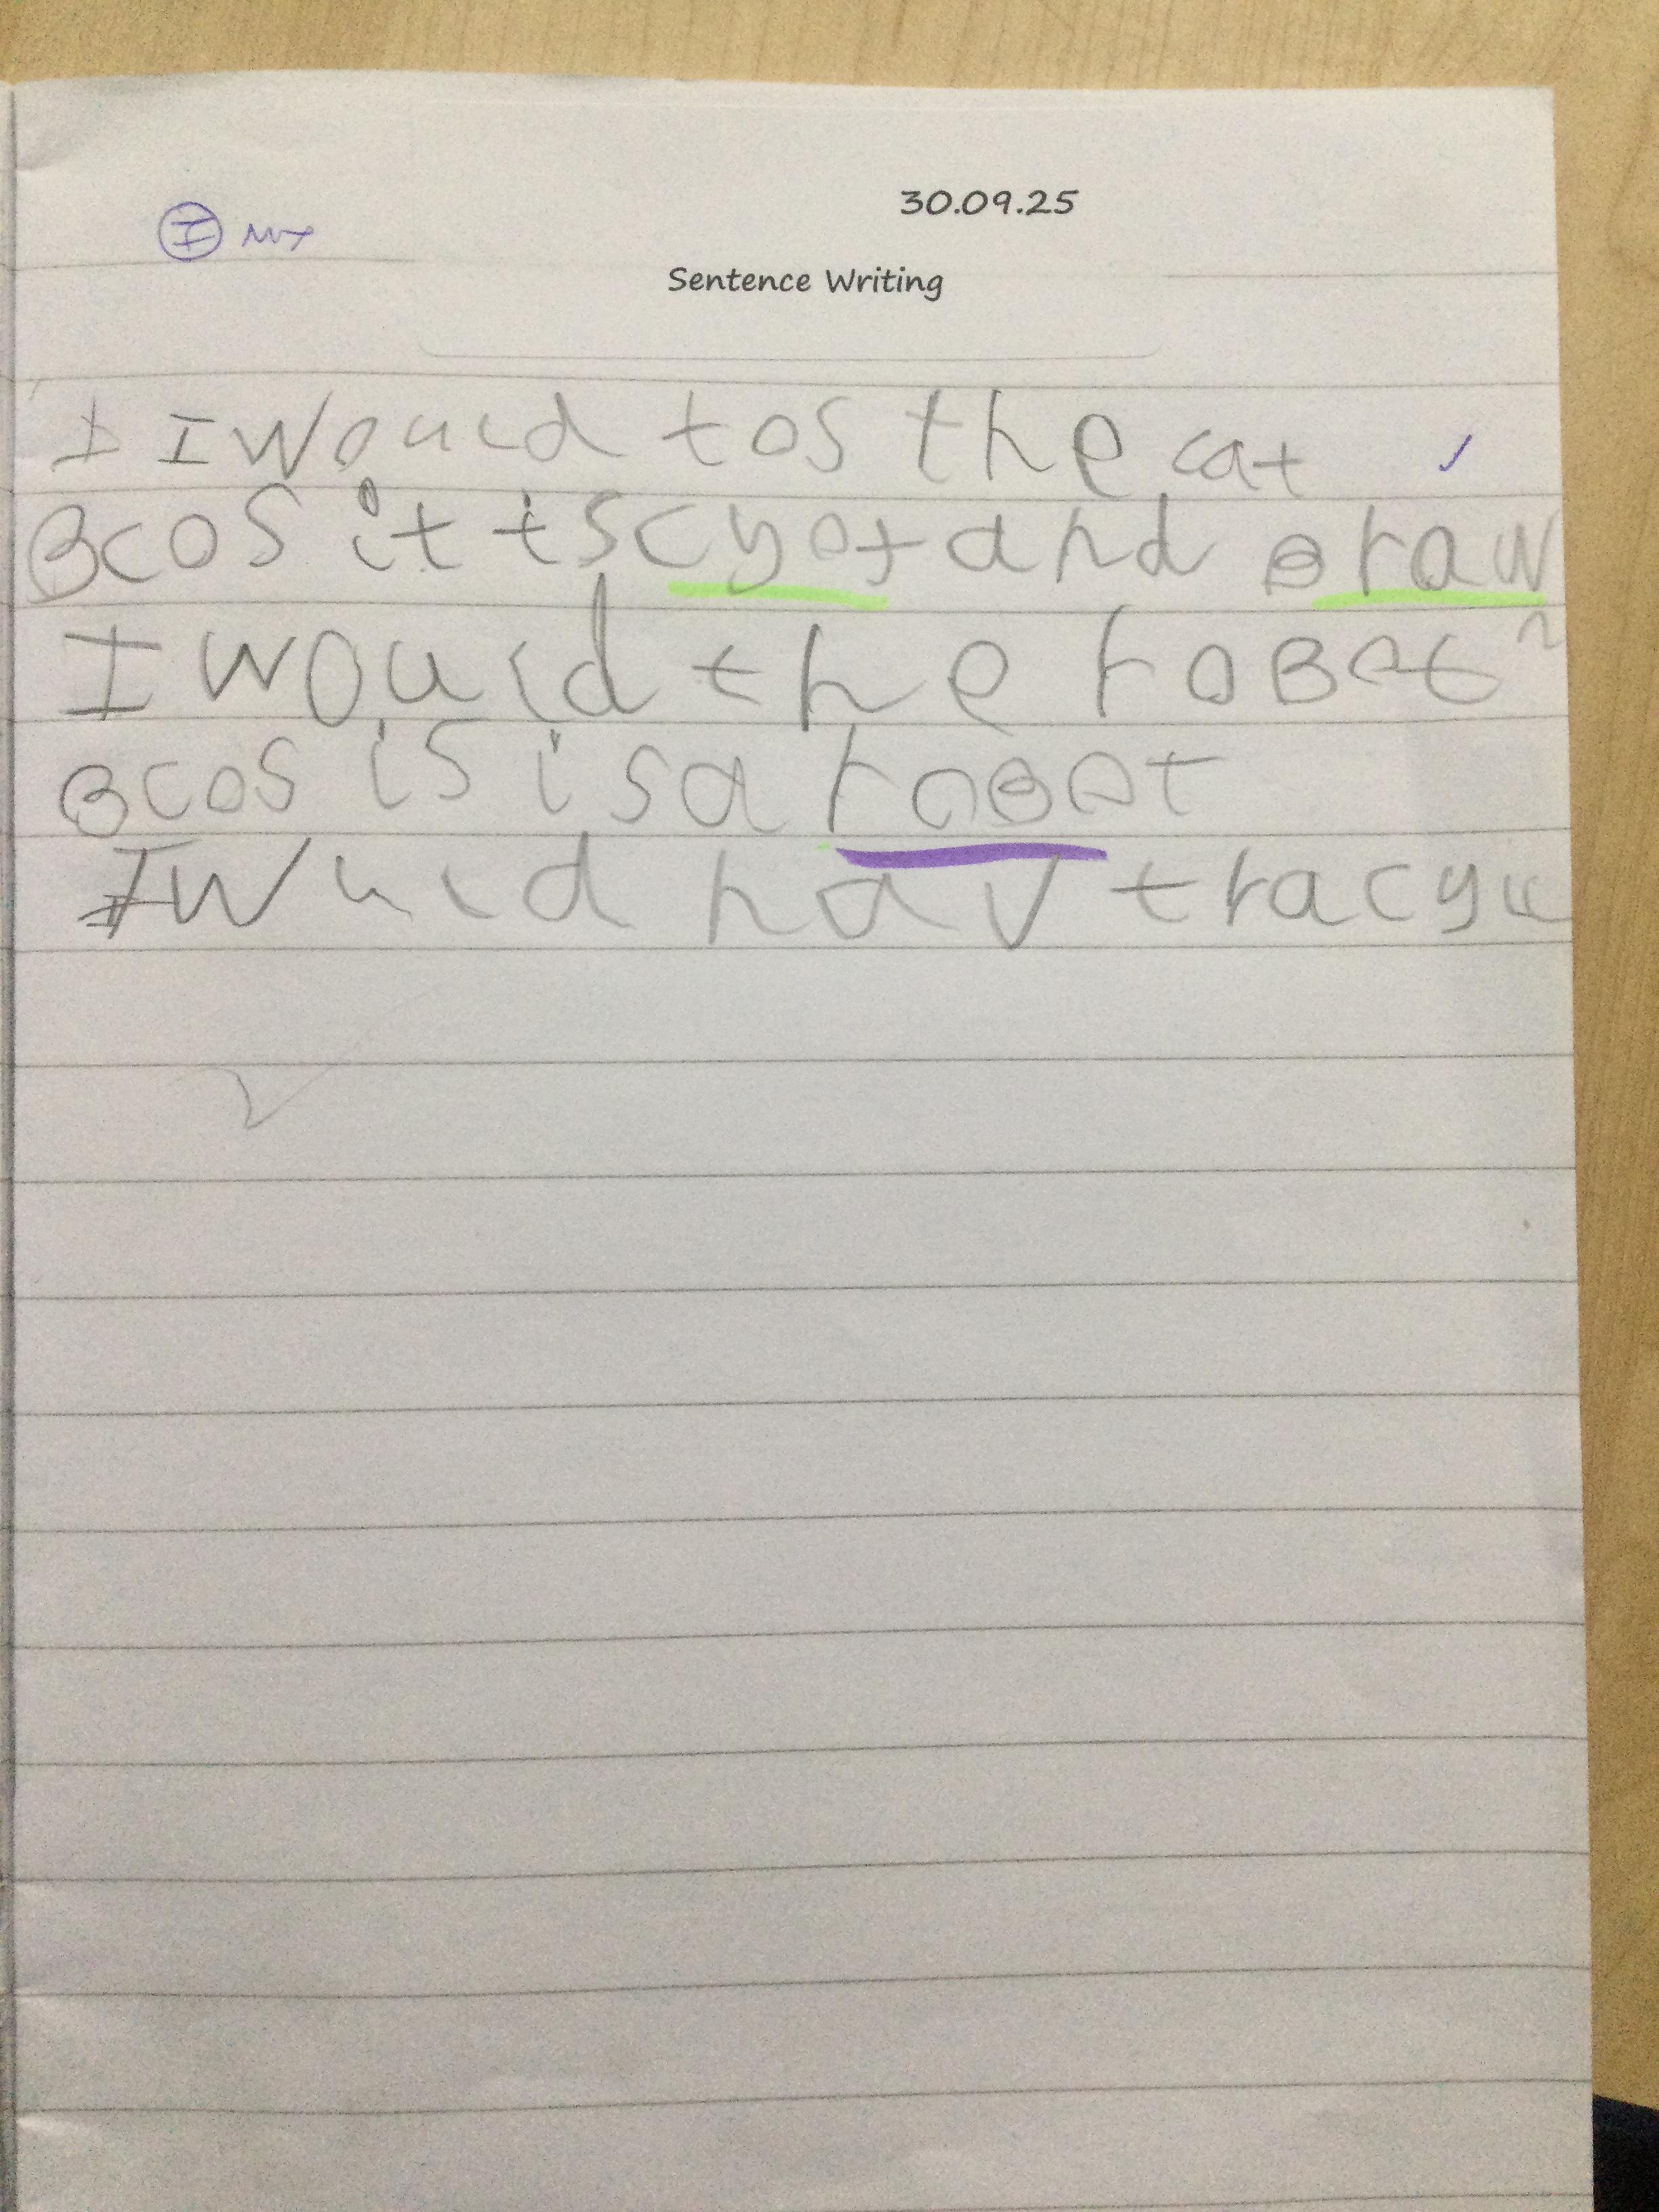 30.09.25
I
Sentence Writing
I I would tos the cat
Bcos it is cyot and Braw
I would the roBot
Bcos is is a roBot
I wuld hav tracyu